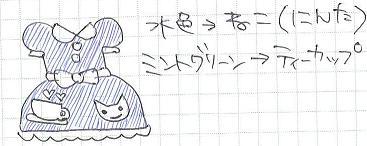 水色→ねこ(にんた)
ミントグリーン→ティーカップ